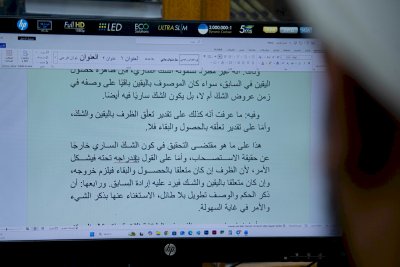 hp FULL HD LED ECO ULTRA SLIM 3,000,000:1
العنوان
اليقين في السابق، سواء كان الموصوف باليقين باقيًا على وصفه في
زمن عروض الشك أم لا، بل يكون الشك ساريًا فيه أيضًا.
وفيه: ما عرفت أنه كذلك على تقدير تعلّق الظرف باليقين والشك،
وأمّا على تقدير تعلّقه بالحصول والبقاء فلا.
هذا على ما هو مقتضى التحقيق في كون الشك الساري خارجًا
عن حقيقة الاستصحاب، وأما على القول بإندراجه تحته فيشكل
الأمر، لأن الظرف إن كان متعلقا بالحصول والبقاء فيلزم خروجه،
وإن كان متعلقا باليقين والشك فيرد عليه إرادة السابق. ورابعها: أن
ذكر الحكم والوصف تطويل بلا طائل، الاستغناء عنها بذكر الشيء
والأمر في غاية السهولة.
hp